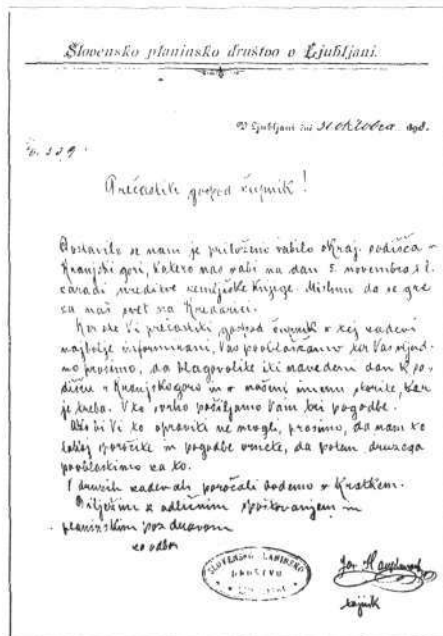 Slovensko planinsko društvo v Ljubljani.
V Ljubljani dné 31 oktobra 1898.
Prečastiti gospod župnik!
Dostavilo se nam je priloženo vabilo okraj. sodišča v
Kranjski gori, katero nas vabi na dan 5. novembra t. l.
zaradi ureditve zemljiške knjige. Mislimo da se gre
za naš svet na Kredarici.
Ker ste Vi prečastiti gospod župnik o tej zadevi
najbolje informirani, Vas pooblaščamo ter Vas uljud-
no prosimo, da blagovolite iti navedeni dan k so-
dišču v Kranjsko goro in v našem imenu storite, kar
je treba. V to svrho pošiljamo Vam tri pogodbe.
Ako bi Vi to opraviti ne mogli, prosimo, da nam to
takoj sporočite in pogodbe vrnete, da potem druzega
pooblastimo za to.
O druzih zadevah poročali bodemo v kratkem.
Biljezimo z odličnim spoštovanjem in
planinskim pozdravom
za odbor
SLOVENSKO PLANINSKO DRUŠTVO
Jos. Hauptman
tajnik